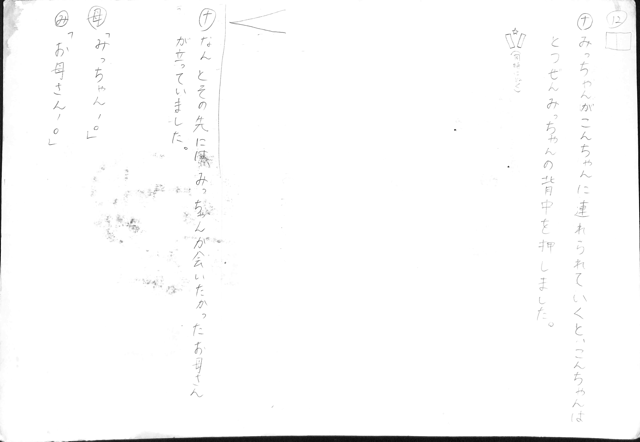 12
ナ みっちゃんがこんちゃんに連れられていくと、こんちゃんは
とつぜんみっちゃんの背中を押しました。
ナ なんとその先にみっちゃんが会いたかったお母さん
が立っていました。
母「みっちゃん!。」
み「お母さん!。」